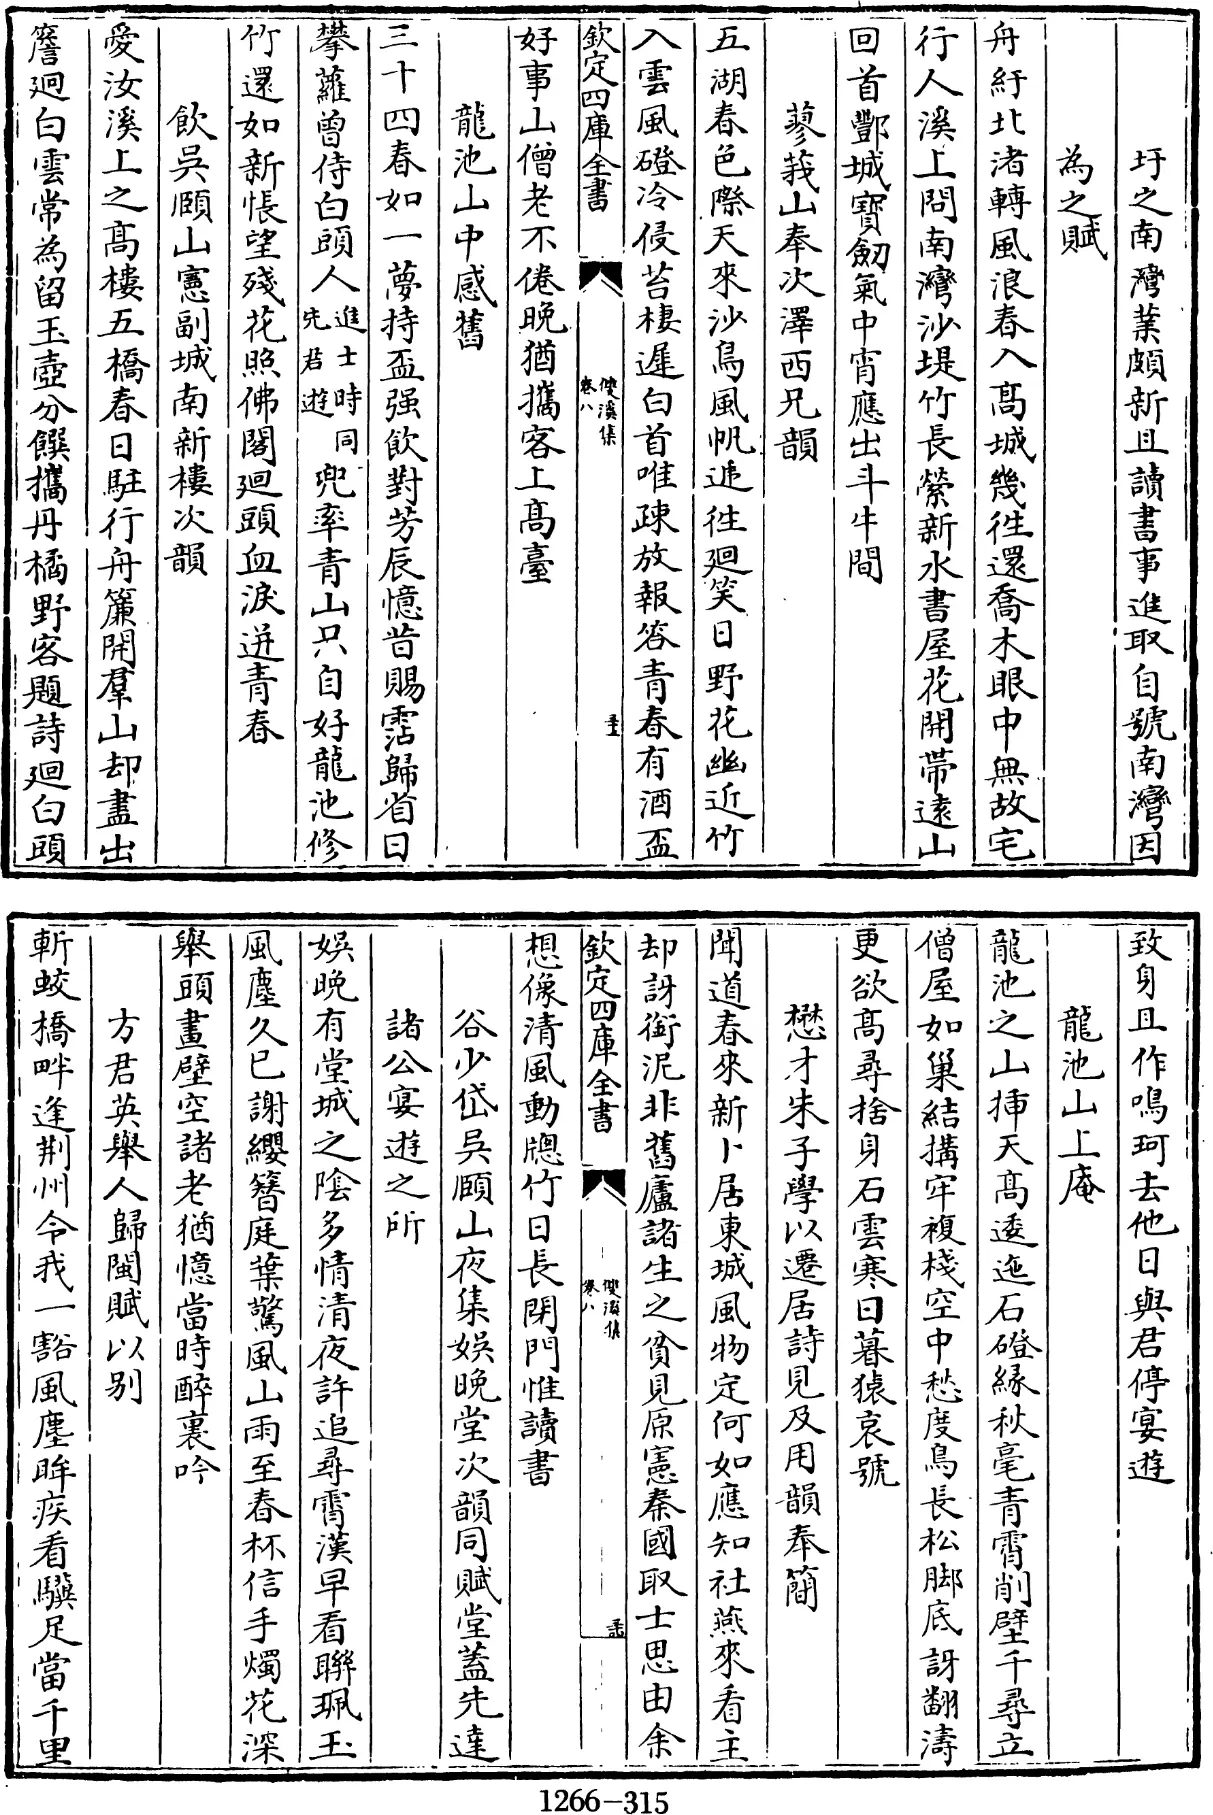 圩之南灣業頗新且讀書事進取自號南灣因
為之賦
舟紆北渚轉風浪春入髙城幾徃還喬木眼中無故宅
行人溪上問南灣沙堤竹長縈新水書屋花開帶逺山
回首酆城寳劒氣中宵應出斗牛間
蓼莪山奉次澤西兄韻
五湖春色際天來沙鳥風帆遞徃廻笑日野花幽近竹
入雲風磴冷侵苔棲遲白首唯疎放報答青春有酒盃
欽定四庫全書
雙溪集
卷八
好事山僧老不倦晩猶攜客上髙臺
龍池山中感舊
三十四春如一夢持盃强飲對芳辰憶昔賜霑歸省日
攀蘿曾侍白頭人進士時同先君遊兜率青山只自好龍池修
竹還如新悵望殘花照佛閣廻頭血淚迸青春
飲吳頤山憲副城南新樓次韻
愛汝溪上之髙樓五橋春日駐行舟簾開羣山却盡出
簷廻白雲常為留玉壺分饌攜丹橘野客題詩廻白頭
致身且作鳴珂去他日與君停宴遊
龍池山上庵
龍池之山挿天髙逶迤石磴緣秋毫青霄削壁千尋立
僧屋如巢結搆牢複棧空中愁度鳥長松脚底訝翻濤
更欲髙尋捨身石雲寒日暮猿哀號
懋才朱子學以遷居詩見及用韻奉簡
聞道春來新卜居東城風物定何如應知社燕來看主
却訝銜泥非舊廬諸生之貧見原憲秦國取士思由余
欽定四庫全書
雙溪集
卷八
想像清風動牕竹日長閉門惟讀書
谷少岱吳頤山夜集娯晩堂次韻同賦堂葢先達
諸公宴遊之所
娯晩有堂城之陰多情清夜許追尋霄漢早看聯珮玉
風塵久已謝纓簪庭葉驚風山雨至春杯信手燭花深
舉頭畫壁空諸老猶憶當時醉裏吟
方君英舉人歸閩賦以别
斬蛟橋畔逢荆州令我一豁風塵眸疾看驥足當千里
1266-315